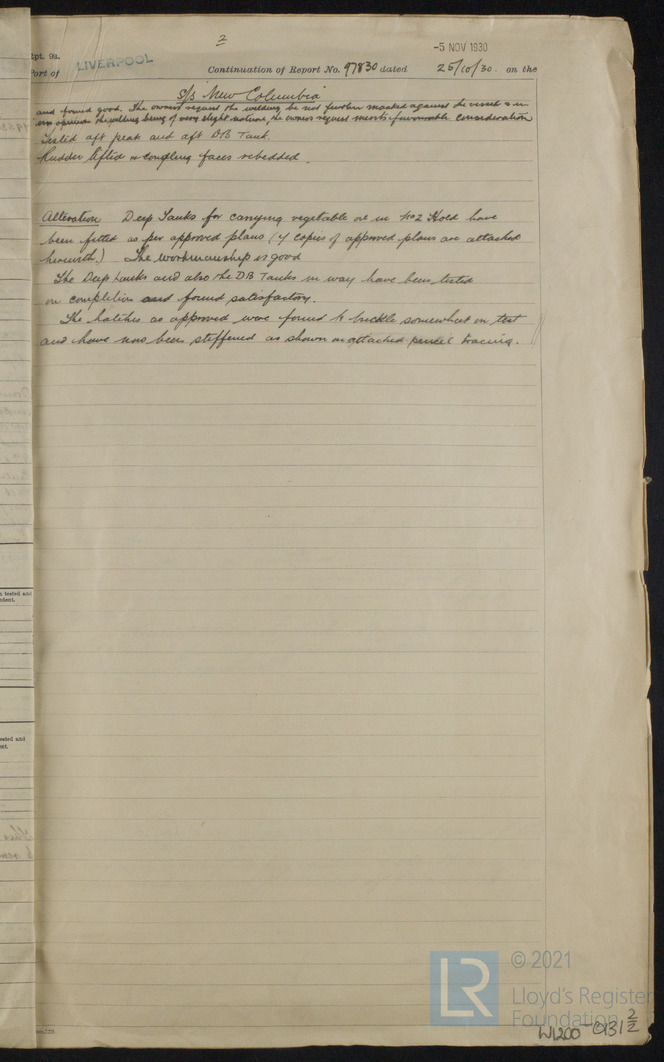 2
-5 NOV 1930
Rpt. 9a.
Port of LIVERPOOL Continuation of Report No. 97830 dated 25/10/30. on the
S/s New Columbia
and found good. The owners request the welding be not further marked against the vessel & in
our opinion the welding being of very slight nature, the owners request merits favourable consideration
Tested aft peak and aft DB Tank.
Rudder lifted & coupling faces rebedded.
Alteration Deep Tanks for carrying vegetable oil in No 2 Hold have
been fitted as per approved plans (4 copies of approved plans are attached
herewith.) The workmanship is good
The Deep tanks and also the DB Tanks in way have been tested
on completion and found satisfactory.
The hatches as approved were found to buckle somewhat on test
and have now been stiffened as shown on attached pencil tracing.
tested and
ested and
© 2021
LR
Lloyd's Register
Foundation
W1200-0131 2/2